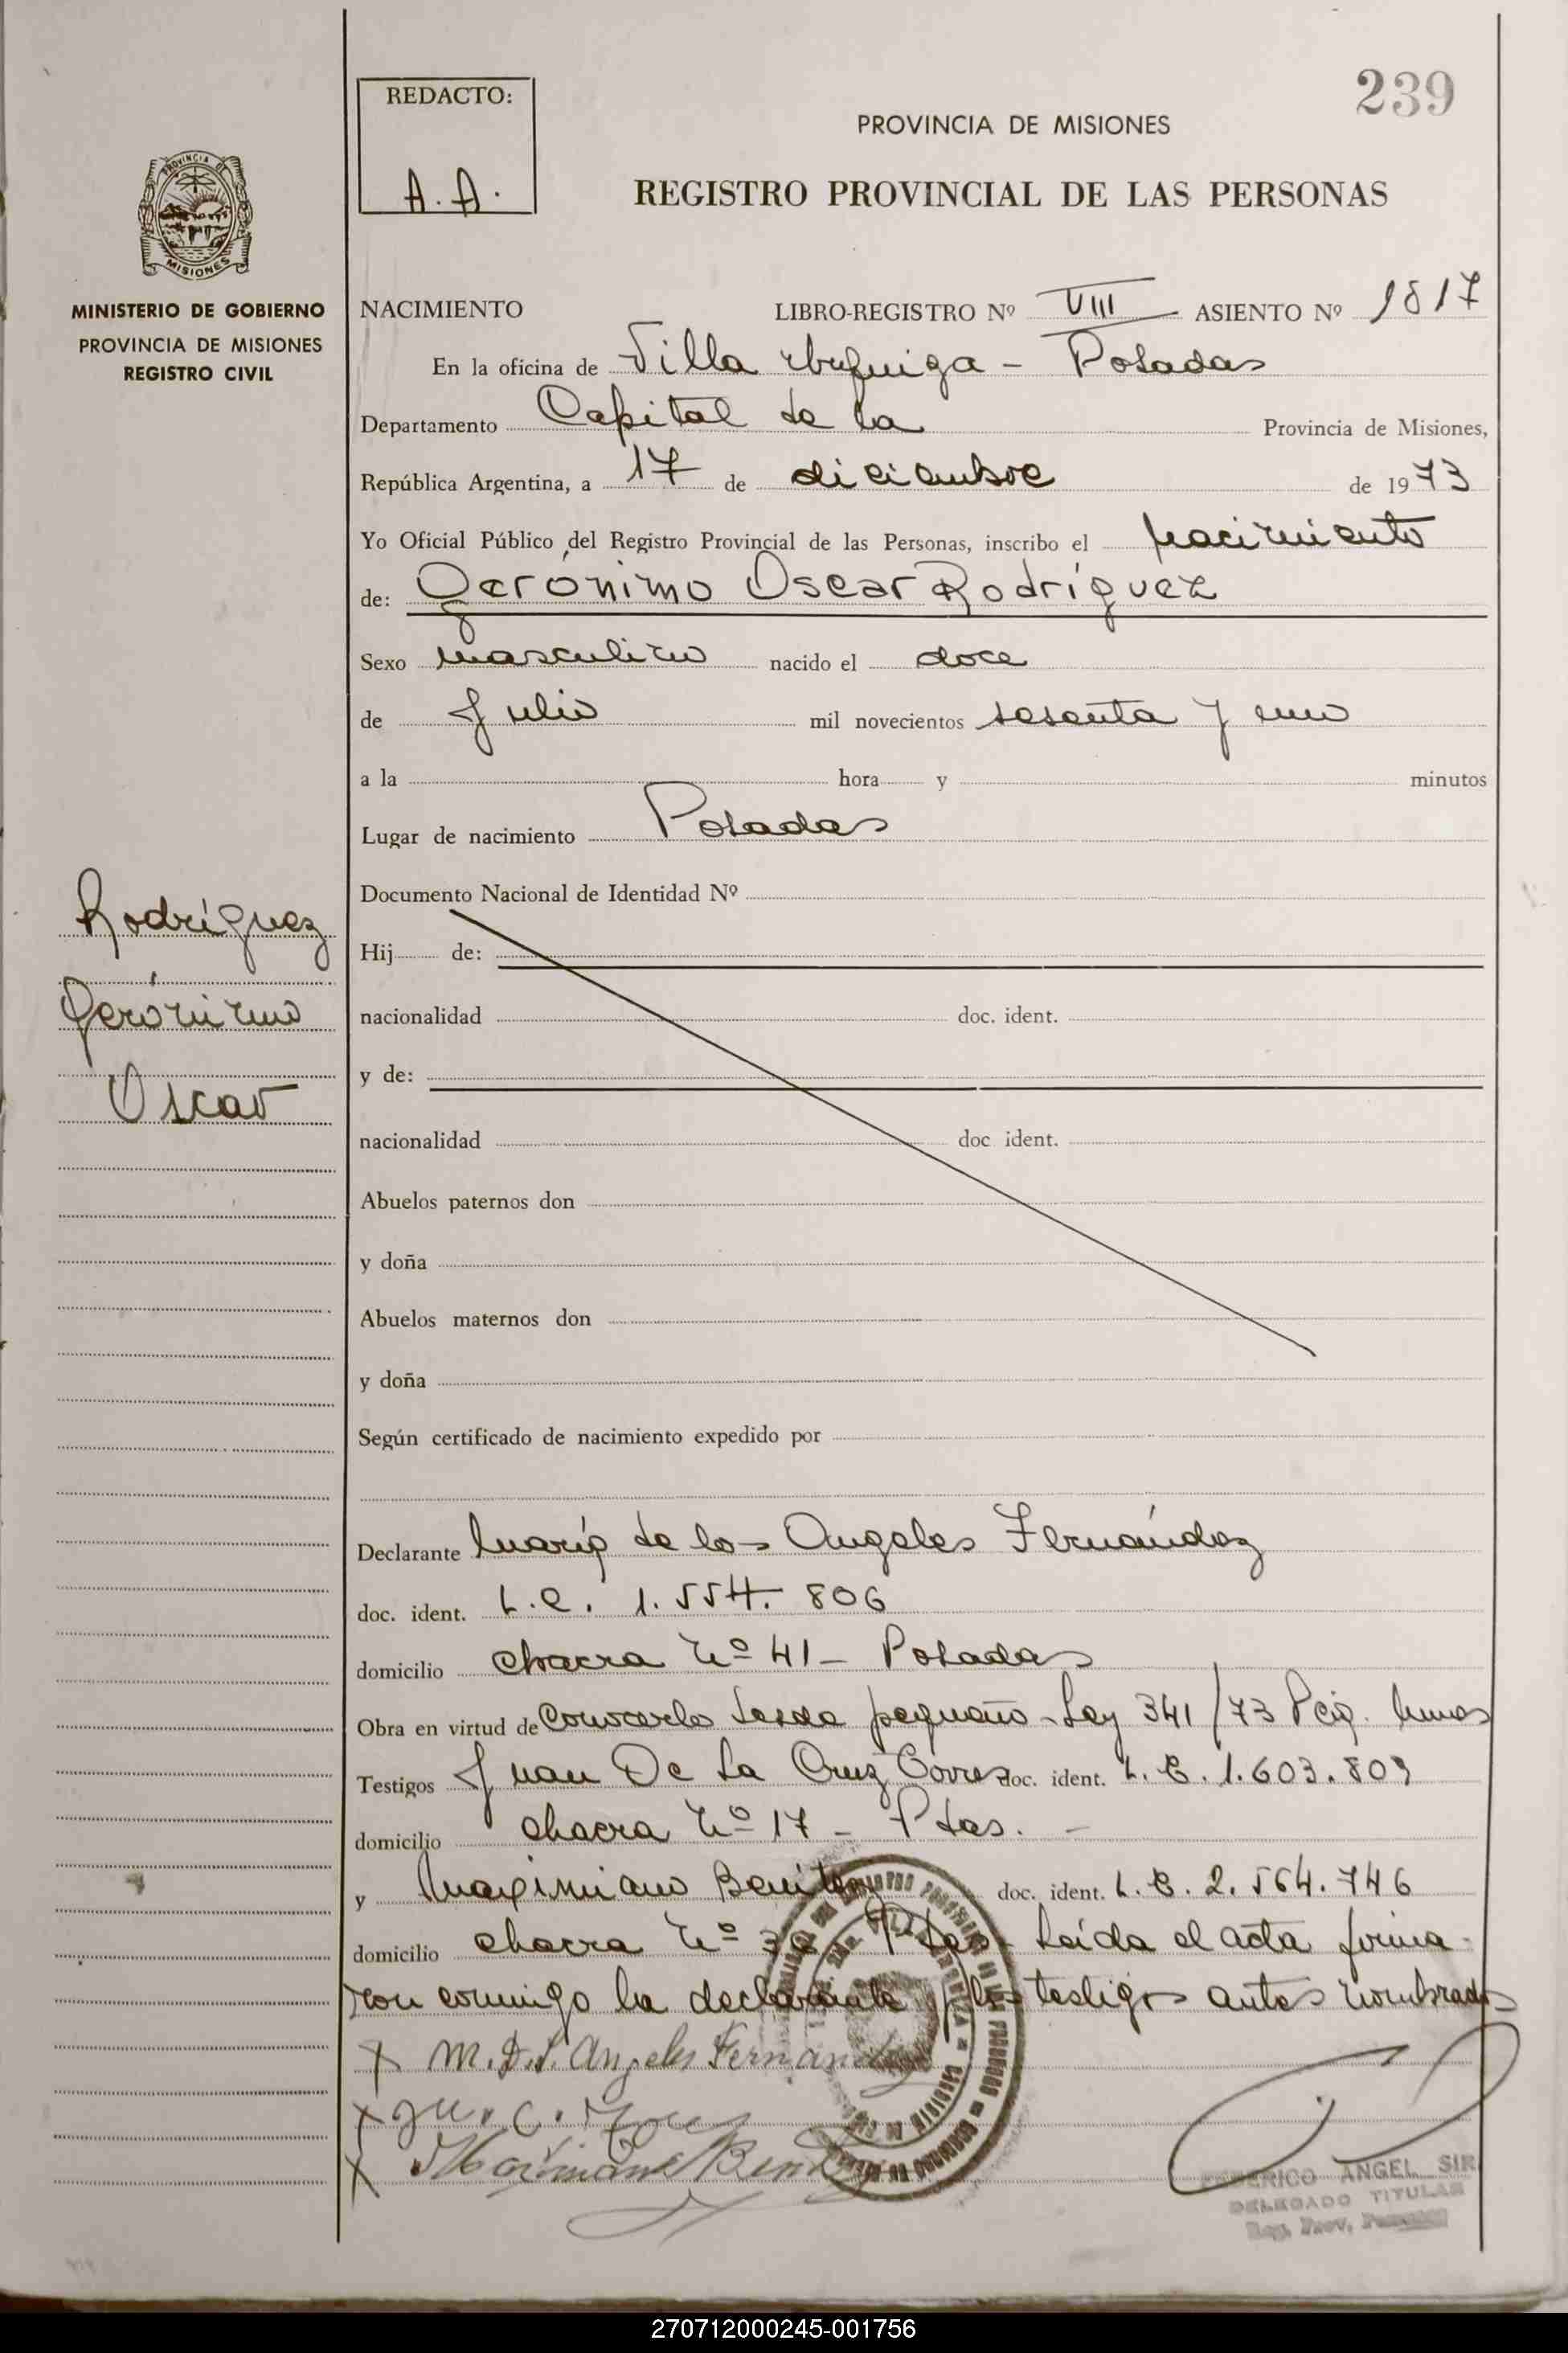 239
REDACTO:
A.A.
PROVINCIA DE MISIONES
REGISTRO PROVINCIAL DE LAS PERSONAS
MINISTERIO DE GOBIERNO
PROVINCIA DE MISIONES
REGISTRO CIVIL
NACIMIENTO LIBRO-REGISTRO Nº VIII ASIENTO Nº 1817
En la oficina de Villa Urquiza - Posadas
Departamento Capital de la Provincia de Misiones,
República Argentina, a 17 de diciembre de 1973
Yo Oficial Público del Registro Provincial de las Personas, inscribo el nacimiento
de: Gerónimo Oscar Rodríguez
Sexo masculino nacido el doce
de Julio mil novecientos sesenta y uno
a la hora y minutos
Lugar de nacimiento Posadas
Documento Nacional de Identidad Nº
Rodríguez
Gerónimo
Oscar
Hij de:
nacionalidad doc. ident.
y de:
nacionalidad doc ident.
Abuelos paternos don
y doña
Abuelos maternos don
y doña
Según certificado de nacimiento expedido por
Declarante María de los Angeles Fernández
doc. ident. L.C. 1.554.806
domicilio chacra Nº 41 - Posadas
Obra en virtud de conocerlo desde pequeño - Ley 341/73
Testigos Juan De La Cruz doc. ident. L.E. 1.603.809
domicilio chacra Nº 17 - Pdas. -
y Maximiano Benitez doc. ident. L.E. 2.564.746
domicilio chacra Nº Pdas - Leída el acta firma
ron conmigo la declarante y los testigos antes nombrados
M.D.L. Angeles Fernandez
Maximiano Benitez
FEDERICO ANGEL SIR
DELEGADO TITULAR
Reg. Prov.
270712000245-001756